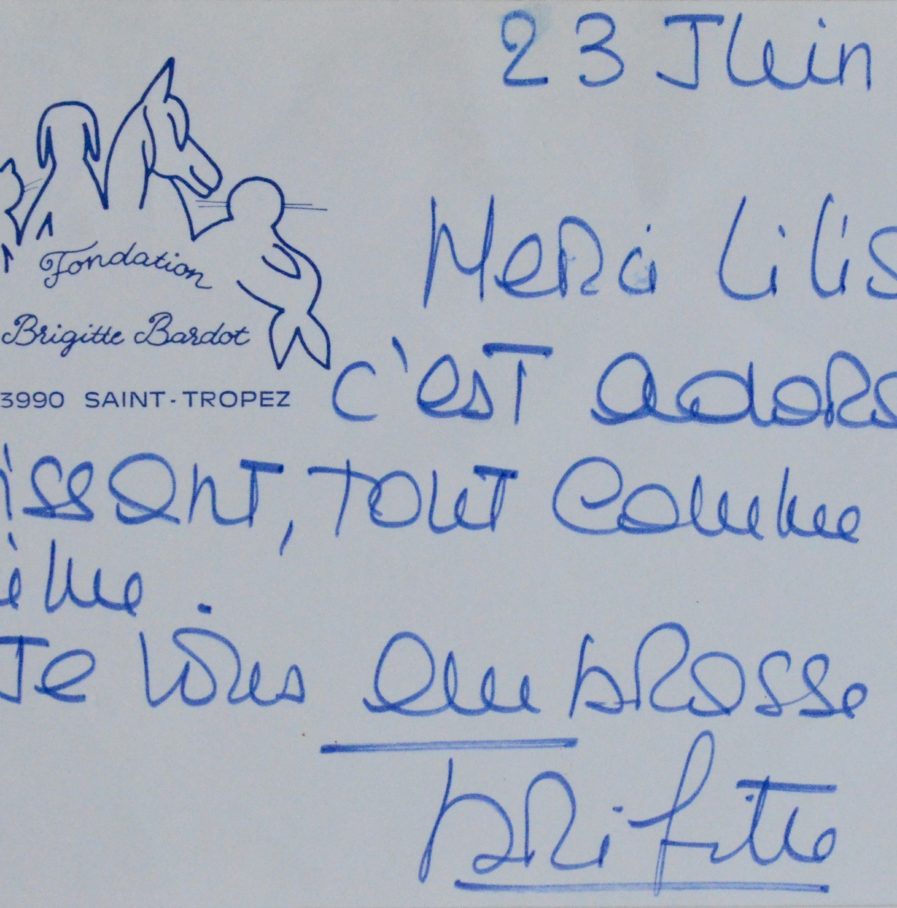 23 Juin
Fondation
Brigitte Bardot
3990 SAINT-TROPEZ
Merci Lilis
c'est adora
issant, tout comme
ème.
Je vous embrasse
Brigitte